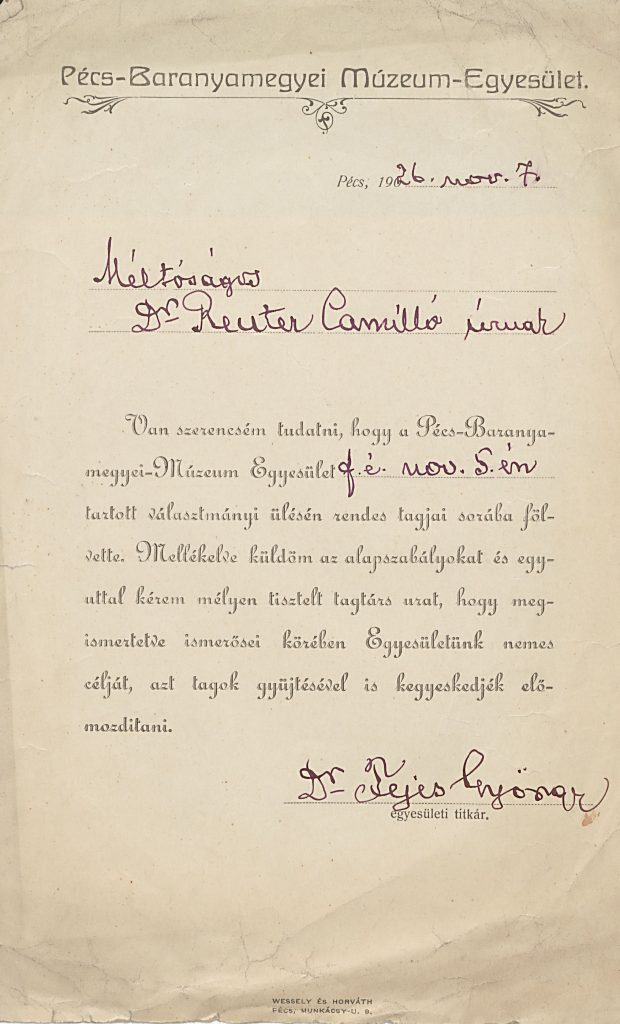 Pécs-Baranyamegyei Múzeum-Egyesület.
Pécs, 1926. nov. 7.
Méltóságos
Dr Reuter Camilló úrnak
Van szerencsém tudatni, hogy a Pécs-Baranya-
megyei-Múzeum Egyesület f. é. nov. 5.én
tartott választmányi ülésén rendes tagjai sorába föl-
vette. Mellékelve küldöm az alapszabályokat és egy-
uttal kérem mélyen tisztelt tagtárs urat, hogy meg-
ismertetve ismerősei körében Egyesületünk nemes
célját, azt tagok gyüjtésével is kegyeskedjék elő-
mozditani.
Dr Fejes György
egyesületi titkár.
WESSELY ÉS HORVÁTH
PÉCS, MUNKÁCSY-U. 8.